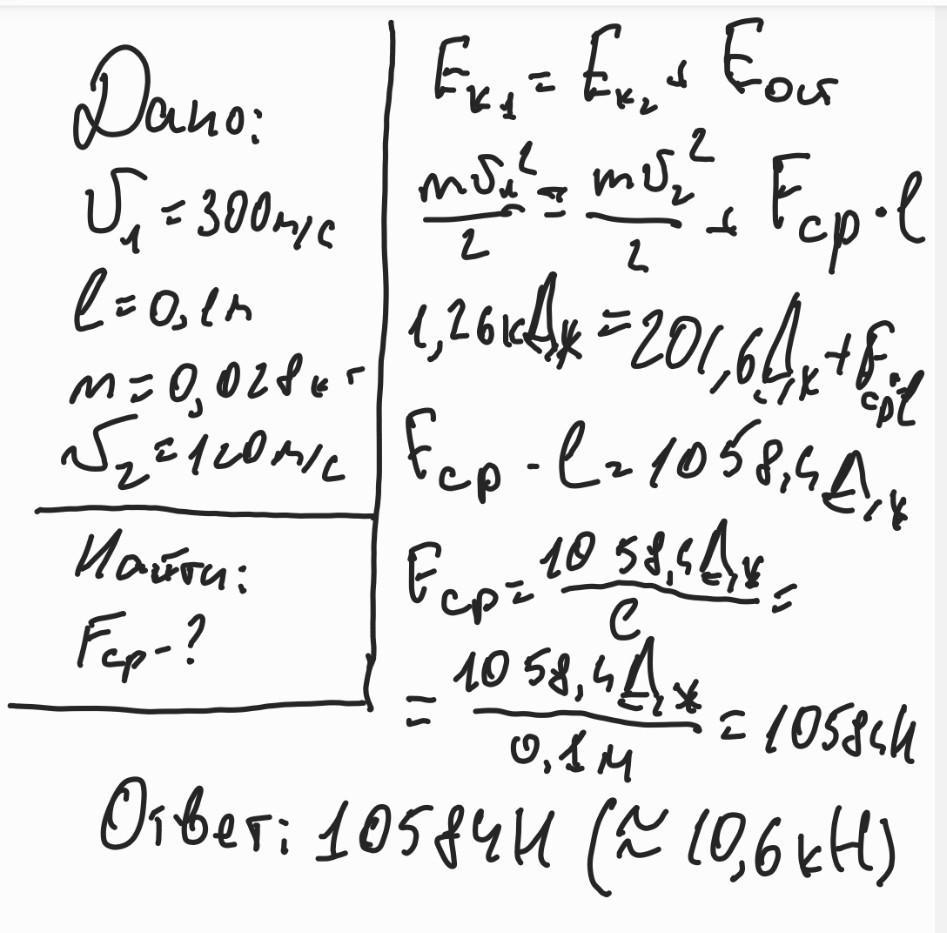 Дано:
υ₁ = 300 м/с
l = 0,1 м
m = 0,028 кг
υ₂ = 120 м/с
Найти:
Fср - ?
Eк₁ = Eк₂ + Eост
mυ₁²/2 = mυ₂²/2 + Fср · l
1,26кДж = 201,6Дж + Fср·l
Fср · l = 1058,4Дж
Fср = 1058,4Дж/l =
= 1058,4Дж/0,1м = 10584Н
Ответ: 10584Н (≈ 10,6кН)